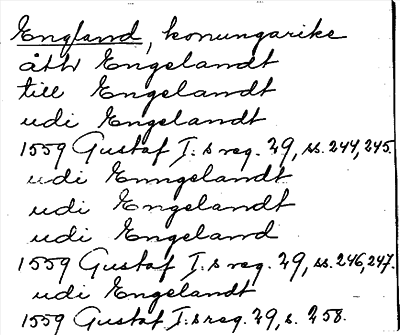 England, konungarike
åth Engelandt
till Engelandt
udi Engelandt
1559 Gustaf I:s reg. 29, ss. 244, 245.
udi Enngelandt
udi Engelandt
udi Engeland
1559 Gustaf I:s reg. 29, ss. 246, 247.
udi Engelandt
1559 Gustaf I:s reg. 29, s. 258.